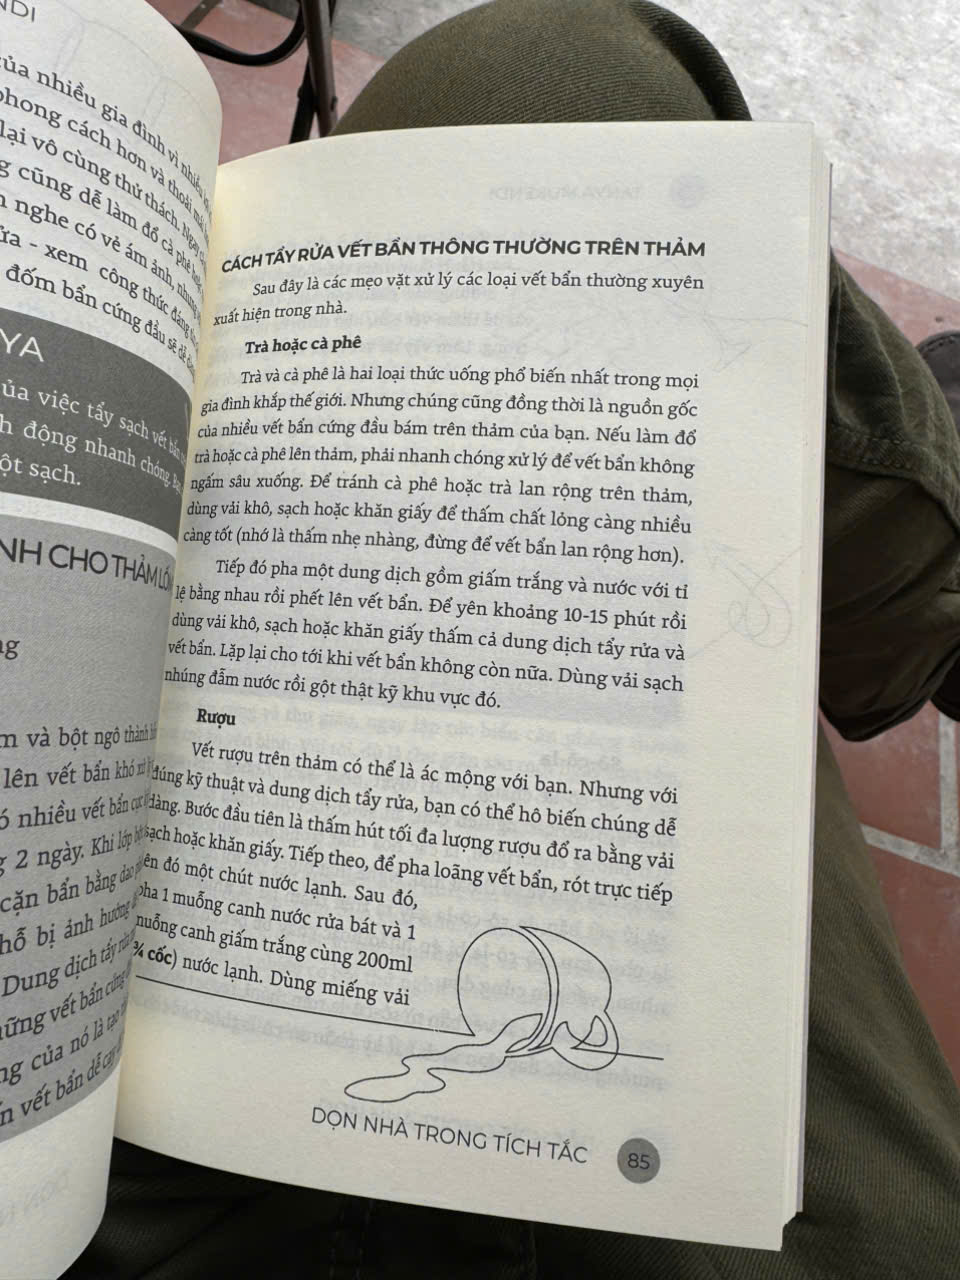 NDI
của nhiều gia đình vì nhiều
phong cách hơn và thoải mái
lại vô cùng thử thách. Ngay
cũng dễ làm đổ cà phê hoặc
nghe có vẻ ám ảnh, nhưng
xem công thức đáng
đốm bẩn cứng đầu sẽ dễ
YA
của việc tẩy sạch vết bẩn
động nhanh chóng.
sạch.
NH CHO THẢM
và bột ngô thành
lên vết bẩn khó
nhiều vết bẩn cực
2 ngày. Khi lớp
cặn bẩn bằng dao
bị ảnh hưởng
Dung dịch tẩy rửa
những vết bẩn cứng
của nó là tạo
vết bẩn dễ
CÁCH TẨY RỬA VẾT BẨN THÔNG THƯỜNG TRÊN THẢM
Sau đây là các mẹo vặt xử lý các loại vết bẩn thường xuyên
xuất hiện trong nhà.
Trà hoặc cà phê
Trà và cà phê là hai loại thức uống phổ biến nhất trong mọi
gia đình khắp thế giới. Nhưng chúng cũng đồng thời là nguồn gốc
của nhiều vết bẩn cứng đầu bám trên thảm của bạn. Nếu làm đổ
trà hoặc cà phê lên thảm, phải nhanh chóng xử lý để vết bẩn không
ngấm sâu xuống. Để tránh cà phê hoặc trà lan rộng trên thảm,
dùng vải khô, sạch hoặc khăn giấy để thấm chất lỏng càng nhiều
càng tốt (nhớ là thấm nhẹ nhàng, đừng để vết bẩn lan rộng hơn).
Tiếp đó pha một dung dịch gồm giấm trắng và nước với tỉ
lệ bằng nhau rồi phết lên vết bẩn. Để yên khoảng 10-15 phút rồi
dùng vải khô, sạch hoặc khăn giấy thấm cả dung dịch tẩy rửa và
vết bẩn. Lặp lại cho tới khi vết bẩn không còn nữa. Dùng vải sạch
nhúng đẫm nước rồi gột thật kỹ khu vực đó.
Rượu
Vết rượu trên thảm có thể là ác mộng với bạn. Nhưng với
đúng kỹ thuật và dung dịch tẩy rửa, bạn có thể hô biến chúng dễ
dàng. Bước đầu tiên là thấm hút tối đa lượng rượu đổ ra bằng vải
sạch hoặc khăn giấy. Tiếp theo, để pha loãng vết bẩn, rót trực tiếp
lên đó một chút nước lạnh. Sau đó,
pha 1 muỗng canh nước rửa bát và 1
muỗng canh giấm trắng cùng 200ml
(¾ cốc) nước lạnh. Dùng miếng vải
DỌN NHÀ TRONG TÍCH TẮC
85